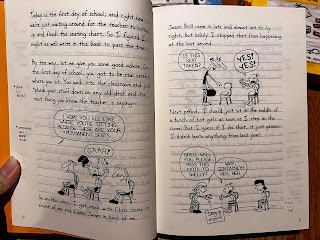 Today is the first day of school, and right now
we're just waiting around for the teacher to hurry
up and finish the seating chart. So I figured I
might as well write in this book to pass the time.
By the way, let me give you some good advice. On
the first day of school, you got to be real careful
where you sit. You walk into the classroom and just
plunk your stuff down on any old desk and the
next thing you know the teacher is saying-
I HOPE YOU ALL LIKE
WHERE YOU'RE SITTING,
BECAUSE THESE ARE YOUR
PERMANENT SEATS.
So in this class, I got stuck with Chris Hosey in
front of me and Lionel James in back of me.
Jason Brill came in late and almost sat to my
right, but luckily I stopped that from happening
at the last second.
IS THIS
SEAT
TAKEN?
YES!
YES!
Next period, I should just sit in the middle of
a bunch of hot girls as soon as I step in the
room. But I guess if I do that, it just proves
I didn't learn anything from last year.
GREG, WILL
YOU PLEASE
PASS THIS
NOTE TO
SHELLY?
WHY
CERTAINLY!
HERE